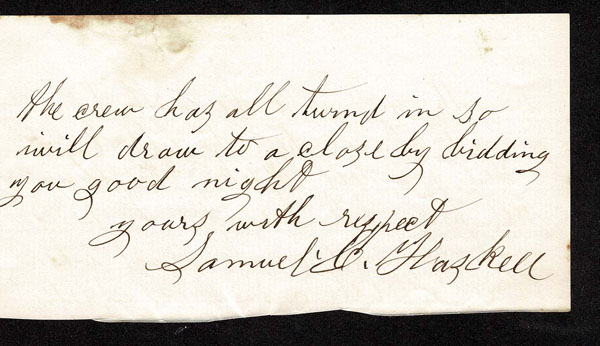 the crew has all turnd in so
i will draw to a close by bidding
you good night
yours with respect
Samuel C. Haskell